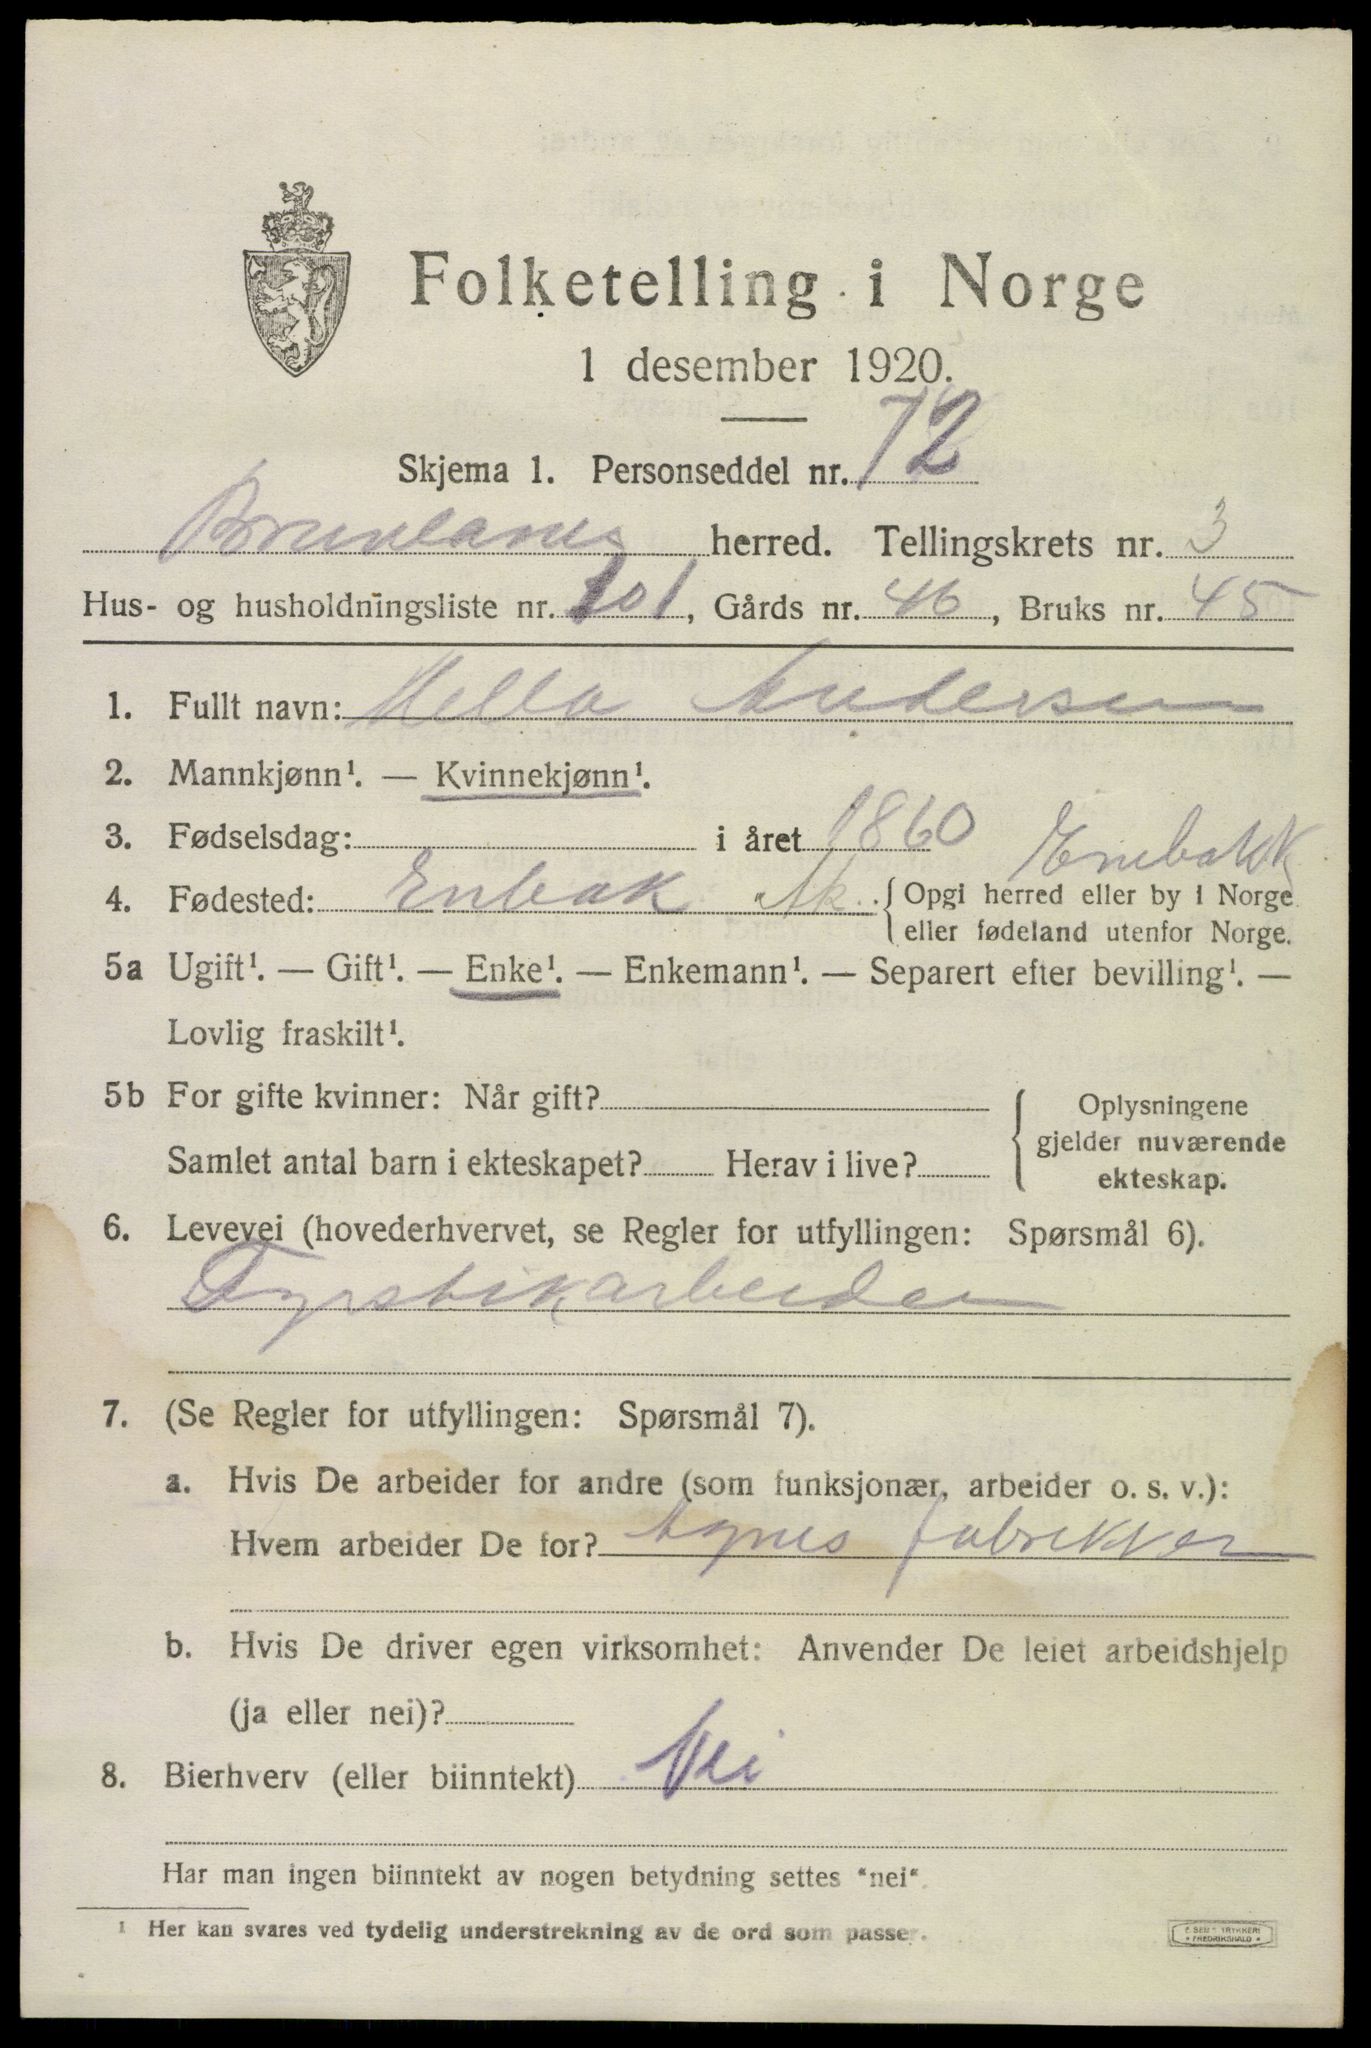 Folketelling i Norge
1 desember 1920.
Skjema 1. Personseddel nr. 72
Brunlanes herred. Tellingskrets nr. 3
Hus- og husholdningsliste nr. 101, Gårds nr. 46, Bruks nr. 45
1. Fullt navn: Andersen
2. Mannkjønn¹. — Kvinnekjønn¹.
3. Fødselsdag: i året 1860
Enebakk
4. Fødested: Enbak Ak. { Opgi herred eller by i Norge
eller fødeland utenfor Norge.
5a Ugift¹. — Gift¹. — Enke¹. — Enkemann¹. — Separert efter bevilling¹. —
Lovlig fraskilt¹.
5b For gifte kvinner: Når gift?
Samlet antal barn i ekteskapet? Herav i live?
{ Oplysningene
gjelder nuværende
ekteskap.
6. Levevei (hovederhvervet, se Regler for utfyllingen: Spørsmål 6).
Fyrstikarbeider
7. (Se Regler for utfyllingen: Spørsmål 7).
a. Hvis De arbeider for andre (som funksjonær, arbeider o. s. v.):
Hvem arbeider De for? Agnes fabrikker
b. Hvis De driver egen virksomhet: Anvender De leiet arbeidshjelp
(ja eller nei)?
8. Bierhverv (eller biinntekt) Nei
Har man ingen biinntekt av nogen betydning settes "nei".
¹ Her kan svares ved tydelig understrekning av de ord som passer.
E. SEM'S TRYKKERI
• FREDRIKSHALD •